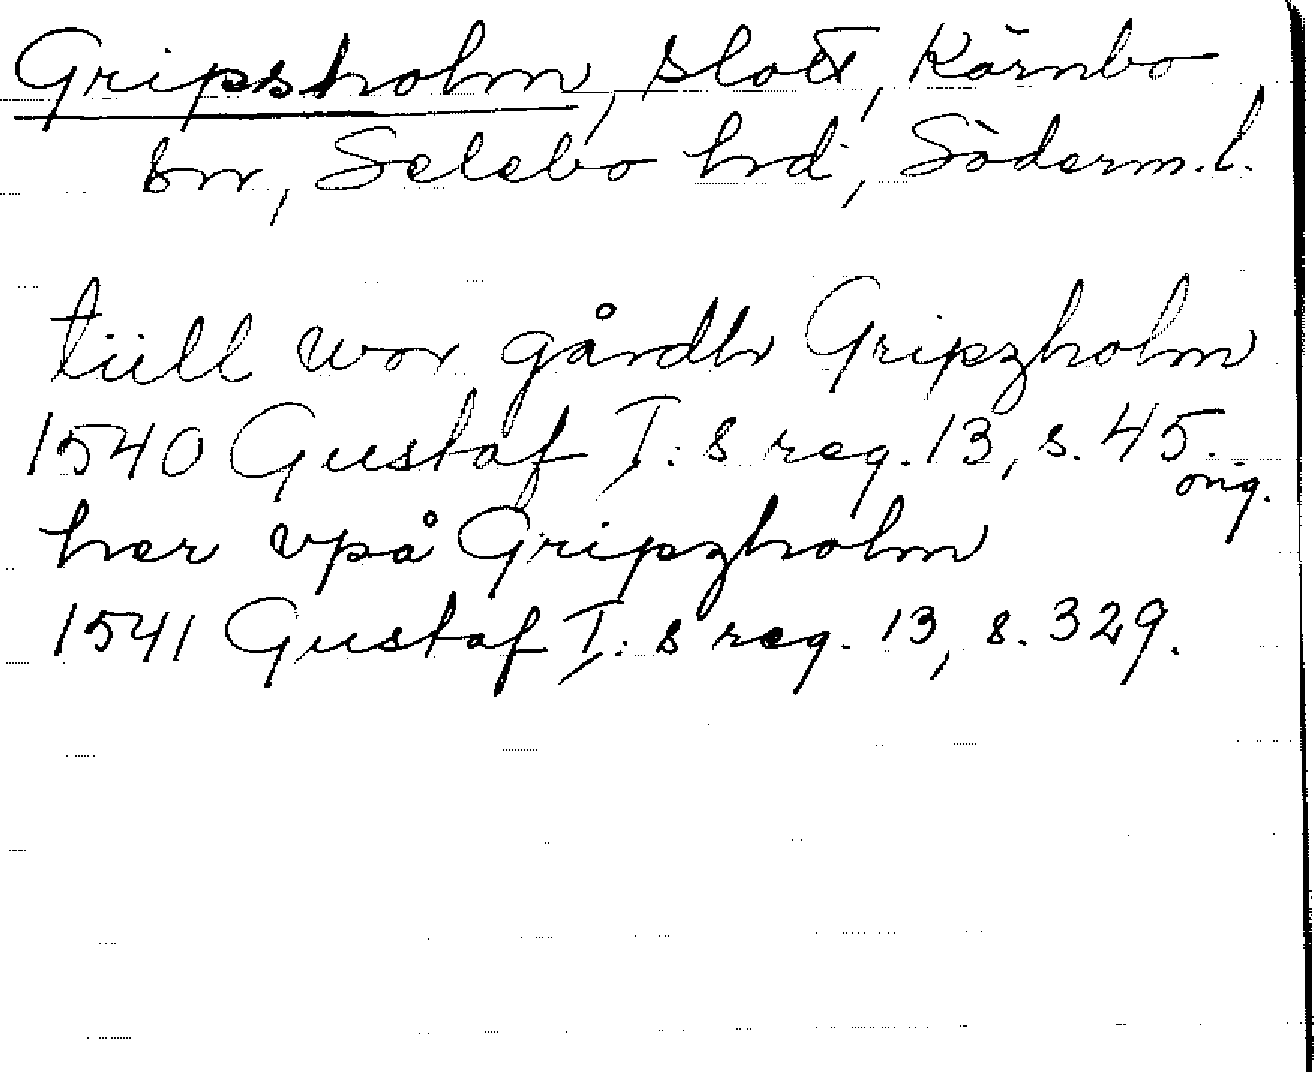 Gripsholm, slott, Kärnbo
sn, Selebo hrd, Söderm. l.
tiill wor gårdh Gripzholm
1540 Gustaf I:s reg. 13, s. 45.
orig.
her vpå Gripzholm
1541 Gustaf I:s reg. 13, s. 329.